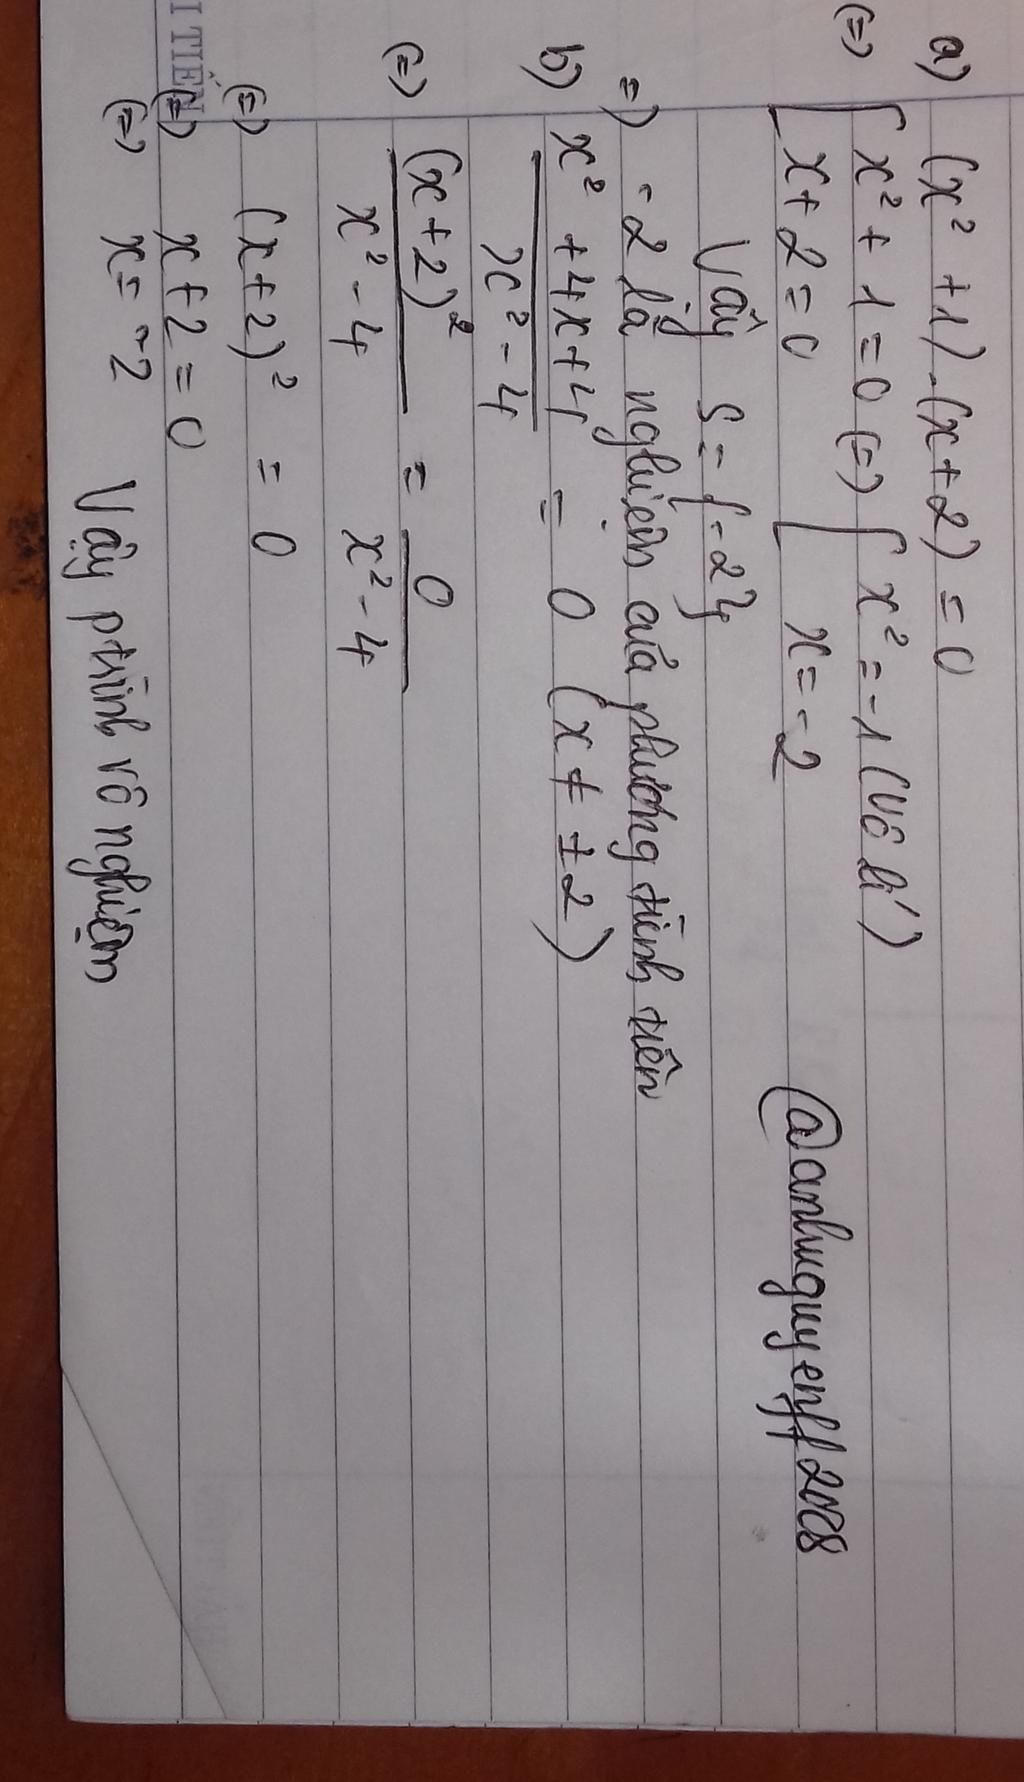 a) (x² + 1).(x + 2) = 0
(=) [ x² + 1 = 0 (=) [ x² = -1 (Vô lí)
x + 2 = 0 x = -2
Vậy S = {-2}
=) -2 là nghiệm của phương trình trên
b) x² + 4x + 4 / x² - 4 = 0 (x ≠ ±2)
(=) (x + 2)² / x² - 4 = 0 / x² - 4
(=) (x + 2)² = 0
(=) x + 2 = 0
(=) x = -2 Vậy ptrình vô nghiệm
I TIẾN